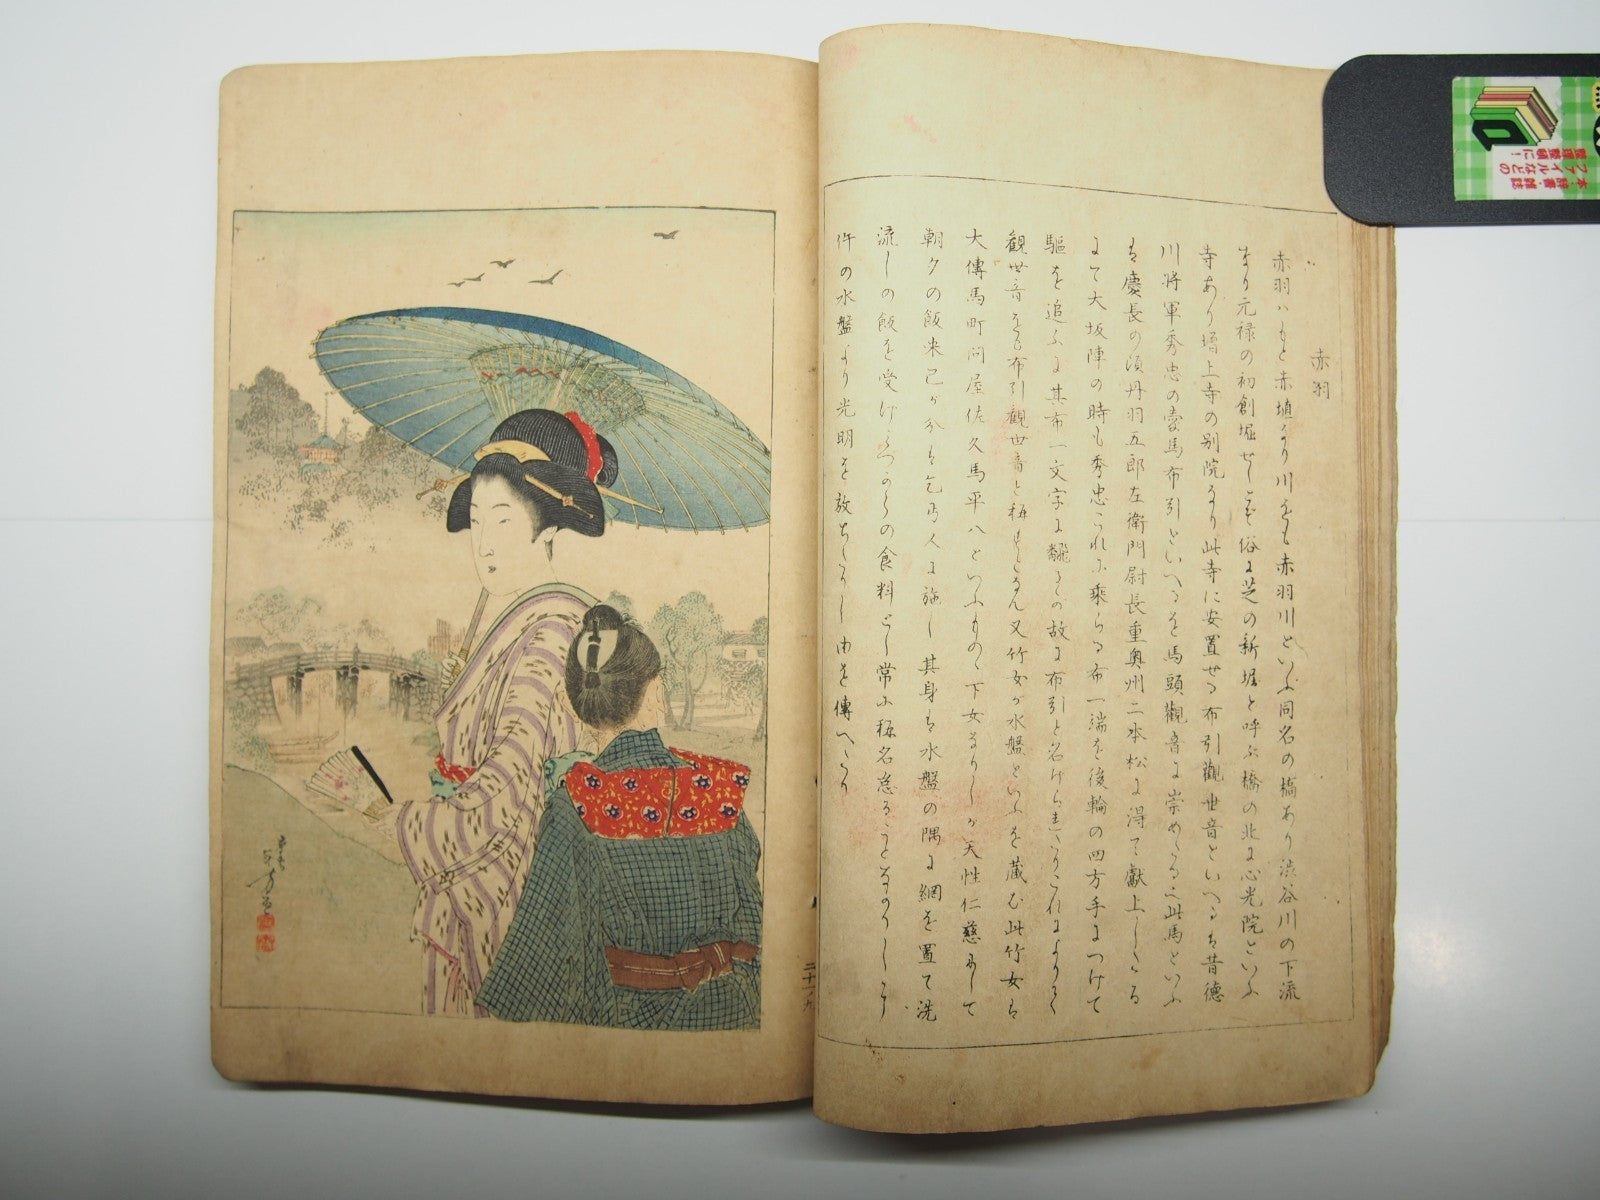 赤羽
赤羽ハもと赤埴より川をも赤羽川といふ同名の橋あり渋谷川の下流
なり元禄の初創堀せしを俗に芝の新堀と呼ぶ橋の北に心光院といふ
寺あり増上寺の別院なり此寺に安置せる布引觀世音といへるは昔德
川將軍秀忠の愛馬布引といへるを馬頭觀音に崇めたる之此馬といふ
は慶長の頃丹羽五郎左衛門尉長重奥州二本松に得て獻上したる
にて大坂陣の時も秀忠これに乘らる布一端を後輪の四方手につけて
驅を追ふに其布一文字に飜るの故に布引と名けられたりこれによりて
觀世音をも布引觀世音と称すとなん又竹女が水盤といふを藏む此竹女は
大傳馬町問屋佐久馬平八といふものゝ下女なりしが天性仁慈にして
朝夕の飯米己が分は乞丐人に施し其身は水盤の隅に網を置て洗
流しの飯を受けみづからの食料とし常に称名怠ることなかりしより
件の水盤より光明を放ちたりし由を傳へたり
二十一ノ九
本・辞書・雑誌
ファイルなどの
整理整頓に!